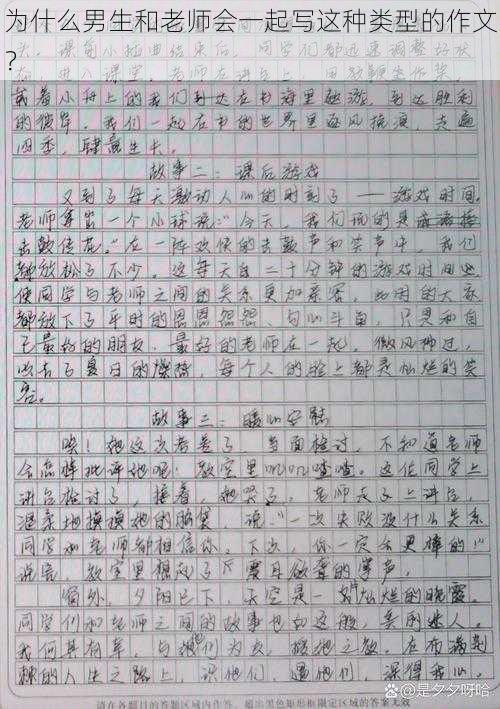 为什么男生和老师会一起写这种类型的作文
?
或着小舟上的我们到达在书海里遨游,到达胜利
的彼岸。我们一起在书的世界里逐风挽浪,走遍
四季,肆意生长。
故事二:课后游戏
又到了每天激动人心的时刻了——游戏时间。
老师拿出一个小球说:"今天,我们玩的是
击鼓传花。"在一阵欢快的击鼓声和笑声中,我们
都放松了不少。这每天二十分钟的游戏时间也
使同学与老师之间的关系更加亲密,此时的大家
都放下了平时的恩恩怨怨、勾心斗角,只想和自
己最好的朋友、最好的老师在一起。微风
夏日的燥热,每个人的脸上都是灿烂的笑
容。
故事三:暖心安慰
唉!她这次考差了,当面检讨,不知道老师
会怎样批评她呢!教室里叽叽喳喳。这位同学上
讲台检讨了,接着,她哭了,老师走上讲台,
温柔地摸摸她的脑袋,说:"一次失败没什么关系
同学和老师都相信你。下次,你一定会更棒的!"
说完,教室里响起了震耳欲聋的掌声。
窗外,夕阳已下,天空是一灿烂的晚霞。
同学们和老师之间的故事也如这般,美丽迷人。
我何其有幸,与他们为友,在布满荆
棘的人生之路上,识他们,遇他们,深得我心。
请在各题目的答题区域内作答,超出黑色矩形框限定区域的答案无效
@是夕夕呀哈